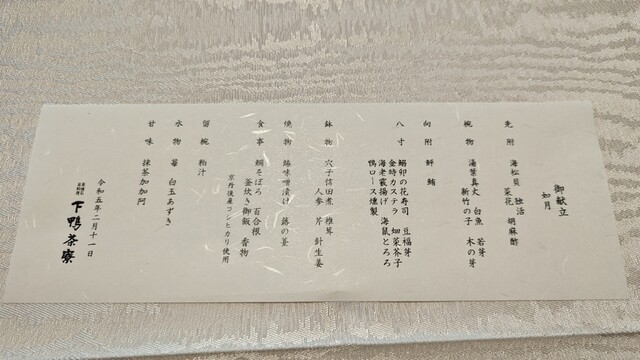 御献立
如月
先附 海松貝 独活
菜花 胡麻酢
椀物 湯葉真丈 白魚 若芽
新竹の子 木の芽
向附 鮃 鮪
八寸 鰯卯の花寿司 豆福芽
金時カステラ 畑菜芥子
海老霰揚げ 海鼠とろろ
鴨ロース燻製
鉢物 穴子信田煮 椎茸
人参 芹 針生姜
焼物 鰆味噌漬け 蕗の薹
食事 鯛そぼろ 百合根
釜炊き御飯 香物
京丹後産コシヒカリ使用
留椀 粕汁
水物 苺 白玉あずき
甘味 抹茶加加阿
令和五年二月十一日
下鴨茶寮